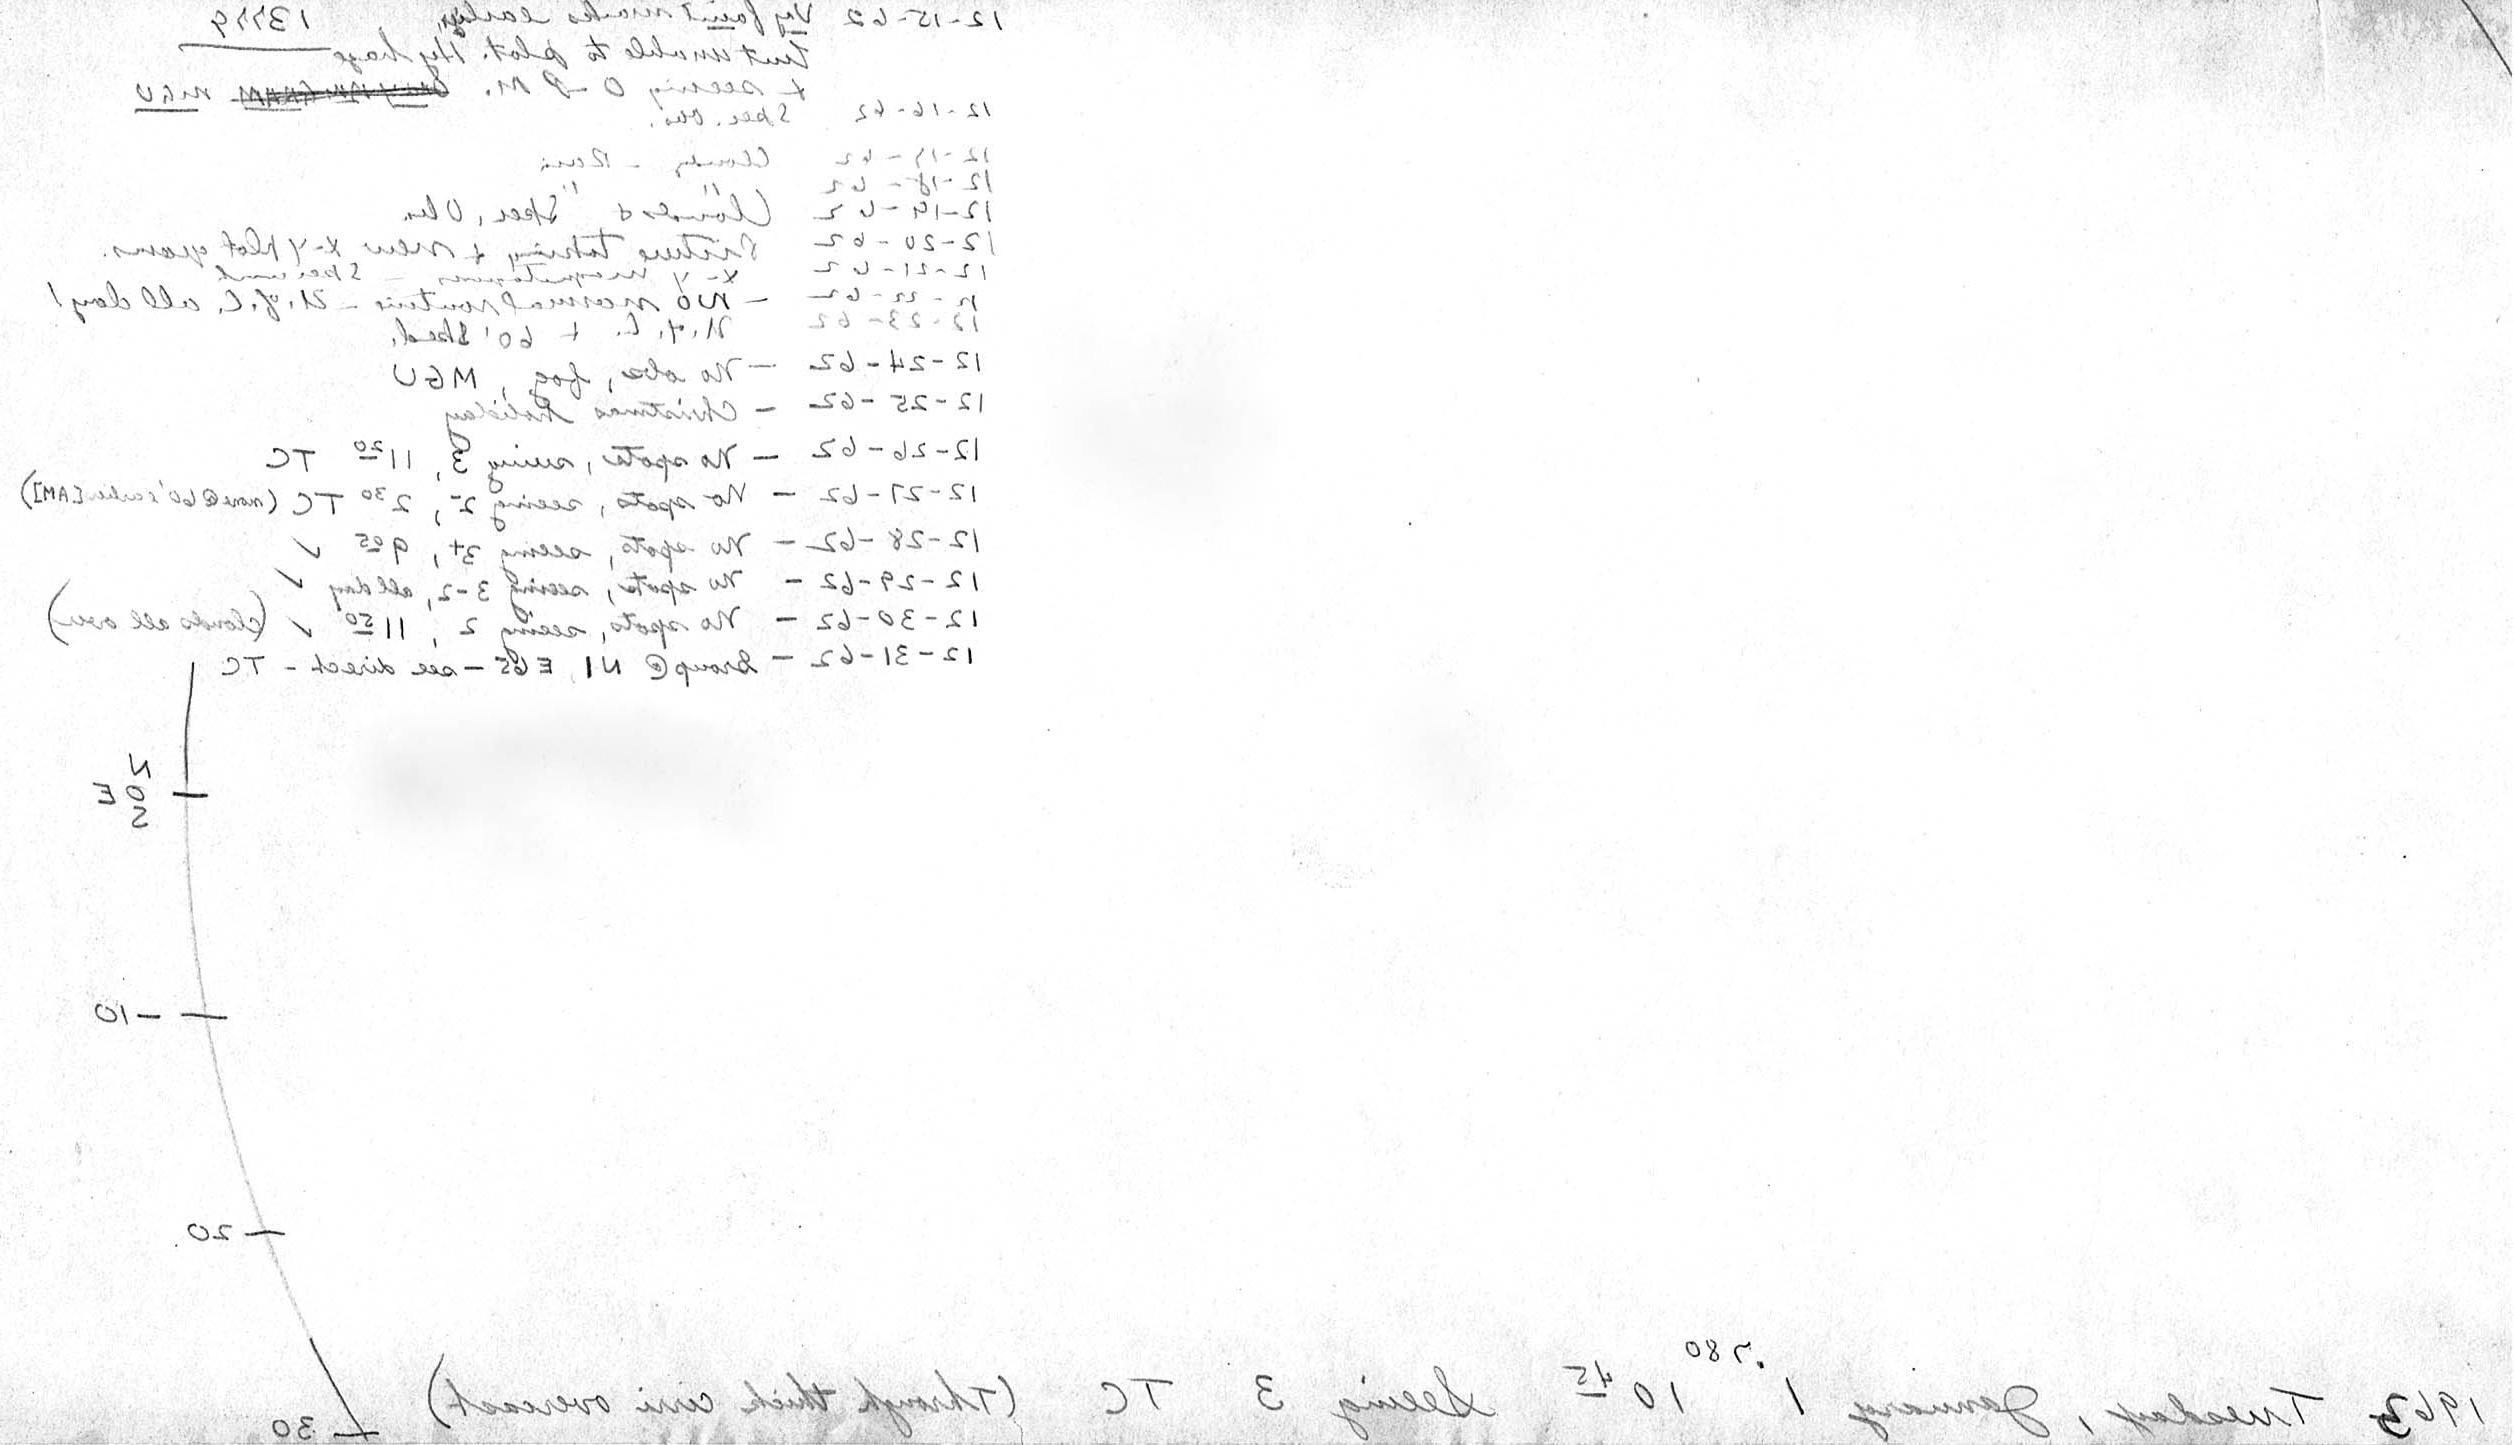 12-15-62 Very faint marks earlier, 13779
but unable to plot. Hvy haze
+ seeing 0 - P.M. MGU
12-16-62 Spec. Obs.
12-17-62 Cloudy - Rain
12-18-62 " "
12-19-62 Clouds + Spec. Obs.
12-20-62 Picture taking + new x-y plot
12-21-62 x-y
12-22-62 - No normal routine - all day!
12-23-62 + 60' Sked.
12-24-62 - No obs, fog, MGU
12-25-62 - Christmas holiday
12-26-62 - No spots, seeing 3, 11 20 TC
12-27-62 - No spots, seeing 2-, 2 30 TC (none @ 60' earlier [AM])
12-28-62 - No spots, seeing 3+, 9 05 ✓
12-29-62 - No spots, seeing 3-2, all day ✓
12-30-62 - No spots, seeing 2, 11 50 ✓ (clouds all over)
12-31-62 - Group @ N11 E65 - see direct - TC
N
0 E
S
-10
-20
-30
1963 Tuesday, January 1 .780 10 45 Seeing 3 TC (Through thick cirri overcast)